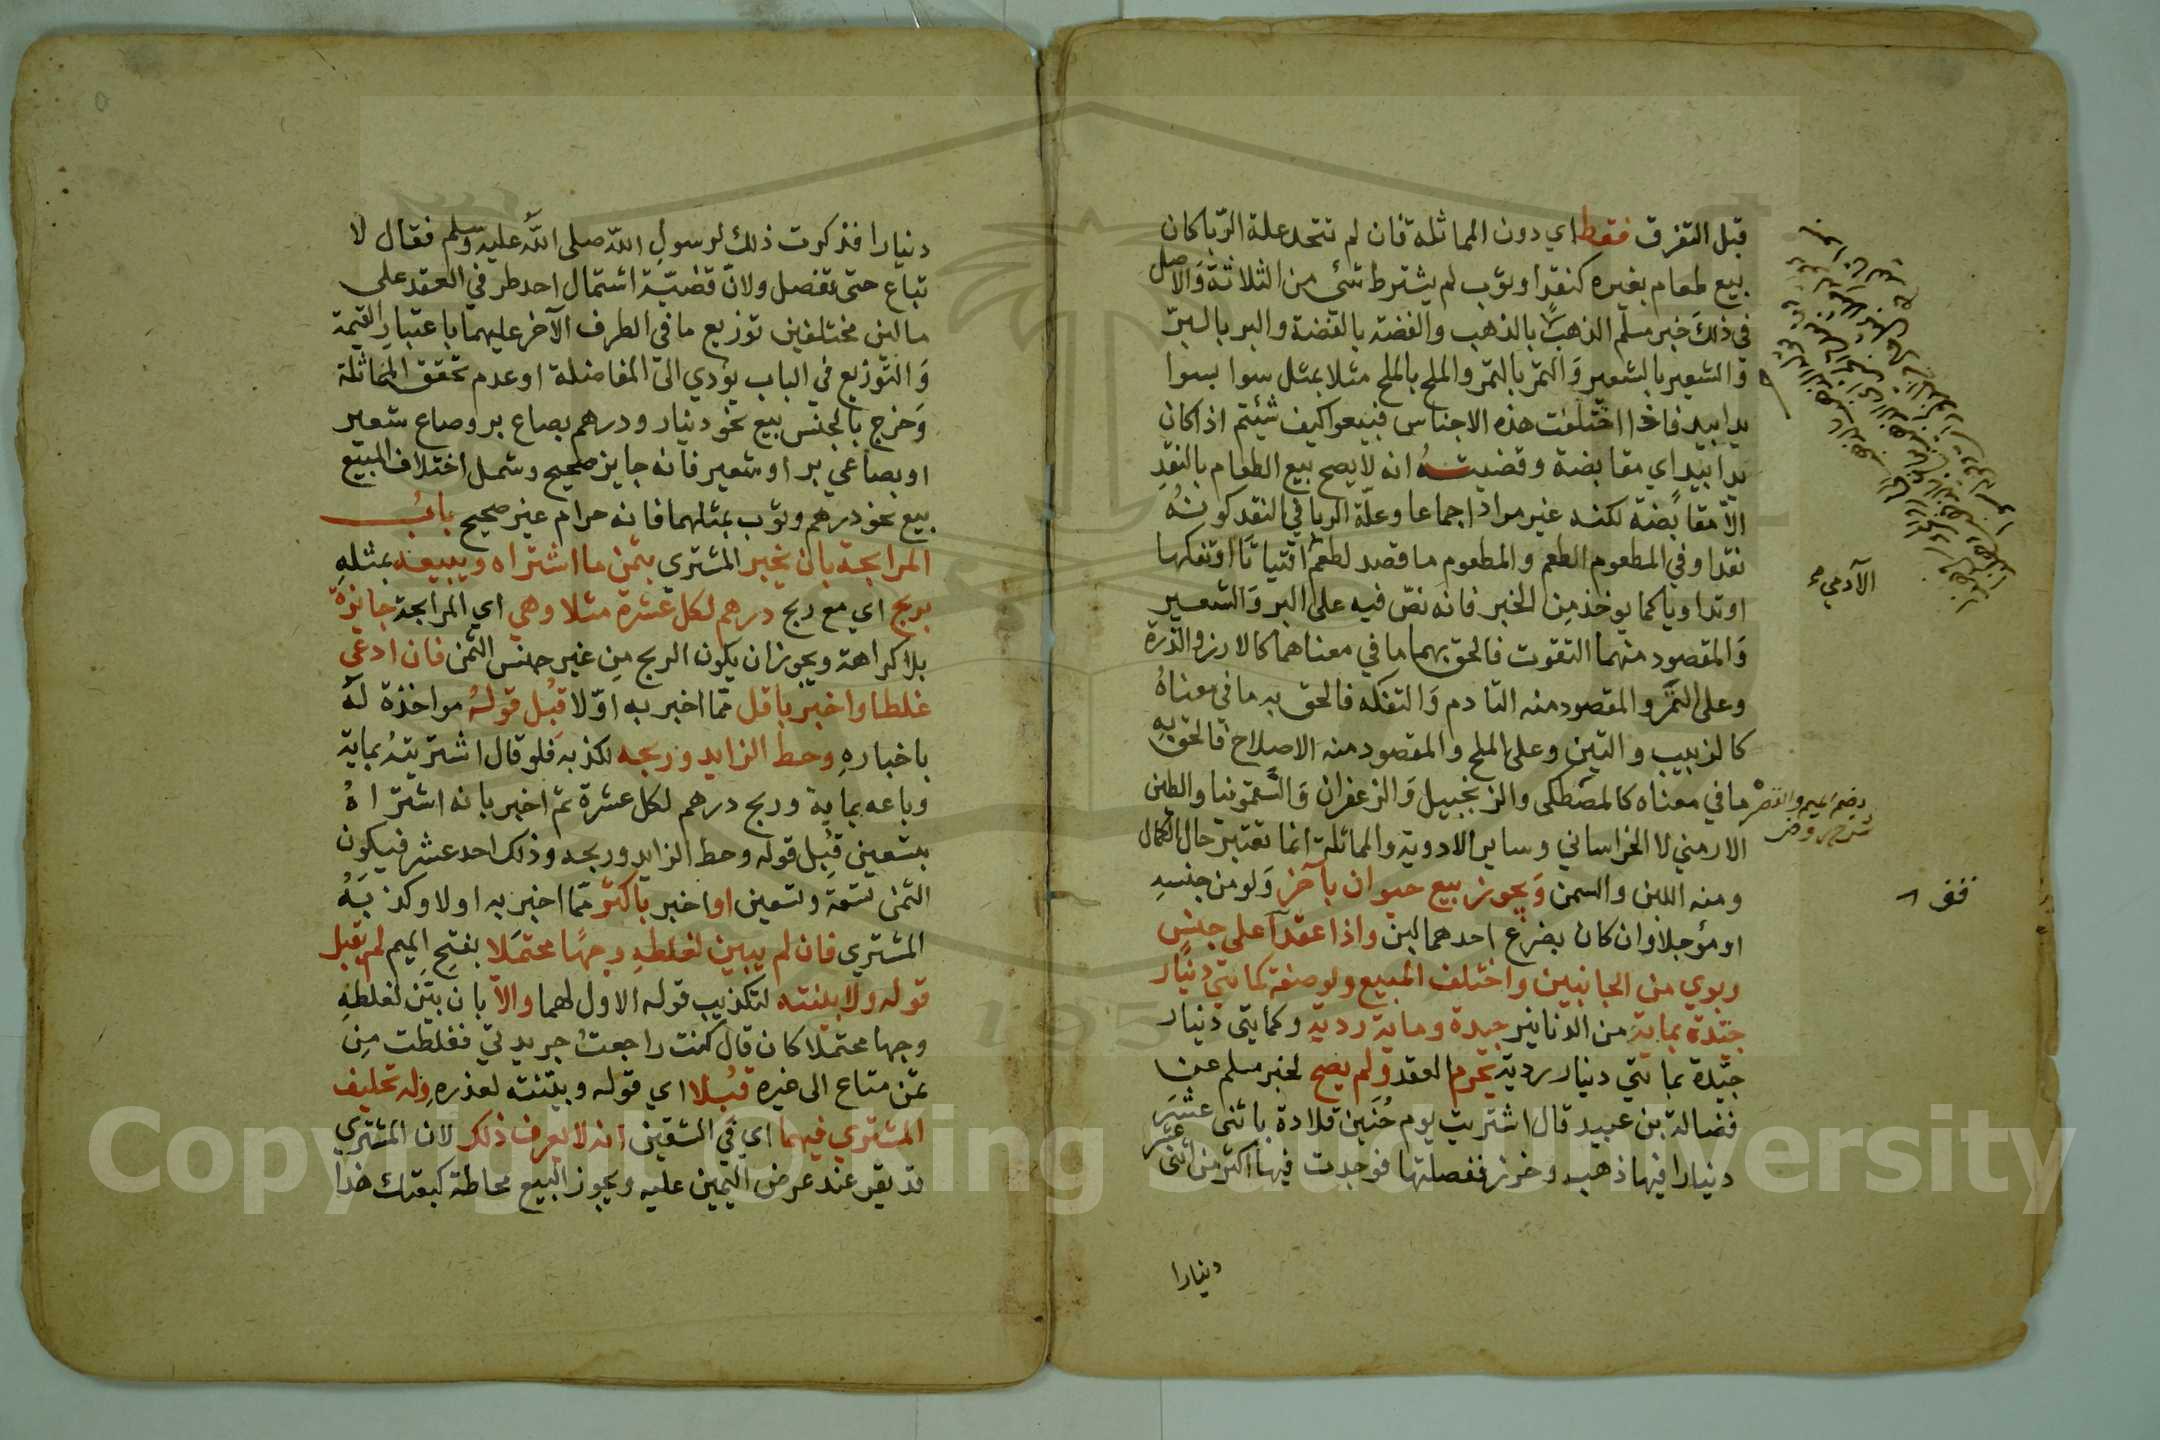 قبل التفرق فقط اي دون المماثله فان لم تتحد علة الربا كان
بيع طعام بغيره كنقد او ثوب لم يشترط شي من الثلاثة والاصل
في ذلك خبر مسلم الذهب بالذهب والفضة بالفضة والبر بالبر
والشعير بالشعير والتمر بالتمر والملح بالملح مثلا بمثل سوا بسوا
يدا بيد فاذا اختلفت هذه الاجناس فبيعوا كيف شيئتم اذا كان
يدا بيد اي مقابضة وقضيته انه لا يصح بيع الطعام بالنقد
الا مقابضة لكنه غير مراد اجماعا وعلة الربا في النقد كونه
نقدا وفي المطعوم الطعم والمطعوم ما قصد لطعم اقتياتا او تفكها
او تداويا كما يوخذ من الخبر فانه نص فيه على البر والشعير
والمقصود منهما التقوت فالحق بهما ما في معناهما كالارز والذرة
وعلى التمر والمقصود منه التادم والتفكه فالحق به ما في معناه
كالزبيب والتين وعلى الملح والمقصود منه الاصلاح فالحق به
ما في معناه كالمصطكى والزنجبيل والزعفران والسقمونيا والطين
الارمني لا الخراساني وساير الادوية والمماثلة انما تعتبر حال الكمال
ومنه اللبن والسمن ويجوز بيع حيوان بآخر ولو من جنسه
او مؤجلا وان كان بضرع احدهما لبن واذا عقدا على جنس
ربوي من الجانبين واختلف المبيع ولو صفة كمايتي دينار
جيدة بماية من الدنانير جيدة وماية ردية وكمايتي دينار
جيدة بمايتي دينار ردية تحرم العقد ولم يصح لخبر مسلم عن
فضالة بن عبيد قال اشتريت يوم حنين قلادة باثنى عشر
دينارا فيها ذهب وخرز ففصلتها فوجدت فيها اكثر من اثنى عشر
دينارا
الآدمي
دينارا فذكرت ذلك لرسول الله صلى الله عليه وسلم فقال لا
تباع حتى تفصل ولان قضية اشتمال احد طرفي العقد على
مالين مختلفين توزيع ما في الطرف الآخر عليهما باعتبار القيمة
والتوزيع في الباب يؤدي الى المفاضلة او عدم تحقق المماثلة
وخرج بالجنس بيع نحو دينار ودرهم بصاع بر وصاع شعير
او بصاعي بر او شعير فانه جايز صحيح وشمل اختلاف المبيع
بيع نحو درهم وثوب بمثلهما فانه حرام غير صحيح باب
المرابحة بان يخبر المشتري بثمن ما اشتراه ويبيعه بمثله
بربح اي مع ربح درهم لكل عشرة مثلا وهي اي المرابحة جايزة
بلا كراهة ويجوز ان يكون الربح من غير جنس الثمن فان ادعى
غلطا واخبر باقل مما اخبر به اولا قبل قوله مواخذة له
باخباره وحط الزايد وربحه لكذبه فلو قال اشتريته بماية
وباعه بماية وربح درهم لكل عشرة ثم اخبر بانه اشتراه
بتسعين قبل قوله وحط الزايد وربحه وذلك احد عشر فيكون
الثمن تسعة وتسعين او اخبر باكثر مما اخبر به اولا وكذبه
المشتري فان لم يبين لغلطه وجها محتملا بفتح الميم لم تقبل
قوله ولا بينته لتكذيب قوله الاول لهما والا بان بين لغلطه
وجها محتملا كان قال كنت راجعت جريدتي فغلطت من
ثمن متاع الى غيره قبلا اي قوله وبينته لعذره وله تحليف
المشتري فيهما اي في الشقين انه لا يعرف ذلك لان المشتري
قد يقر عند عرض اليمين عليه ويجوز البيع محاطة كبعتك هذا
Copyright © King Saud University